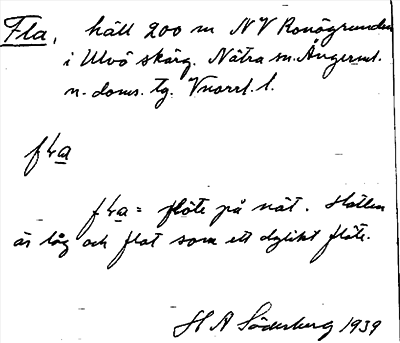 Fla, häll 200 m NV Ronögrunden
i Ulvö skärg. Nätra sn. Ångerml.
n. doms. tg. Vnorrl. l.
fLa
fLa = flöte på nät. Hällen
är låg och flat som ett dylikt flöte.
H A Söderberg 1939